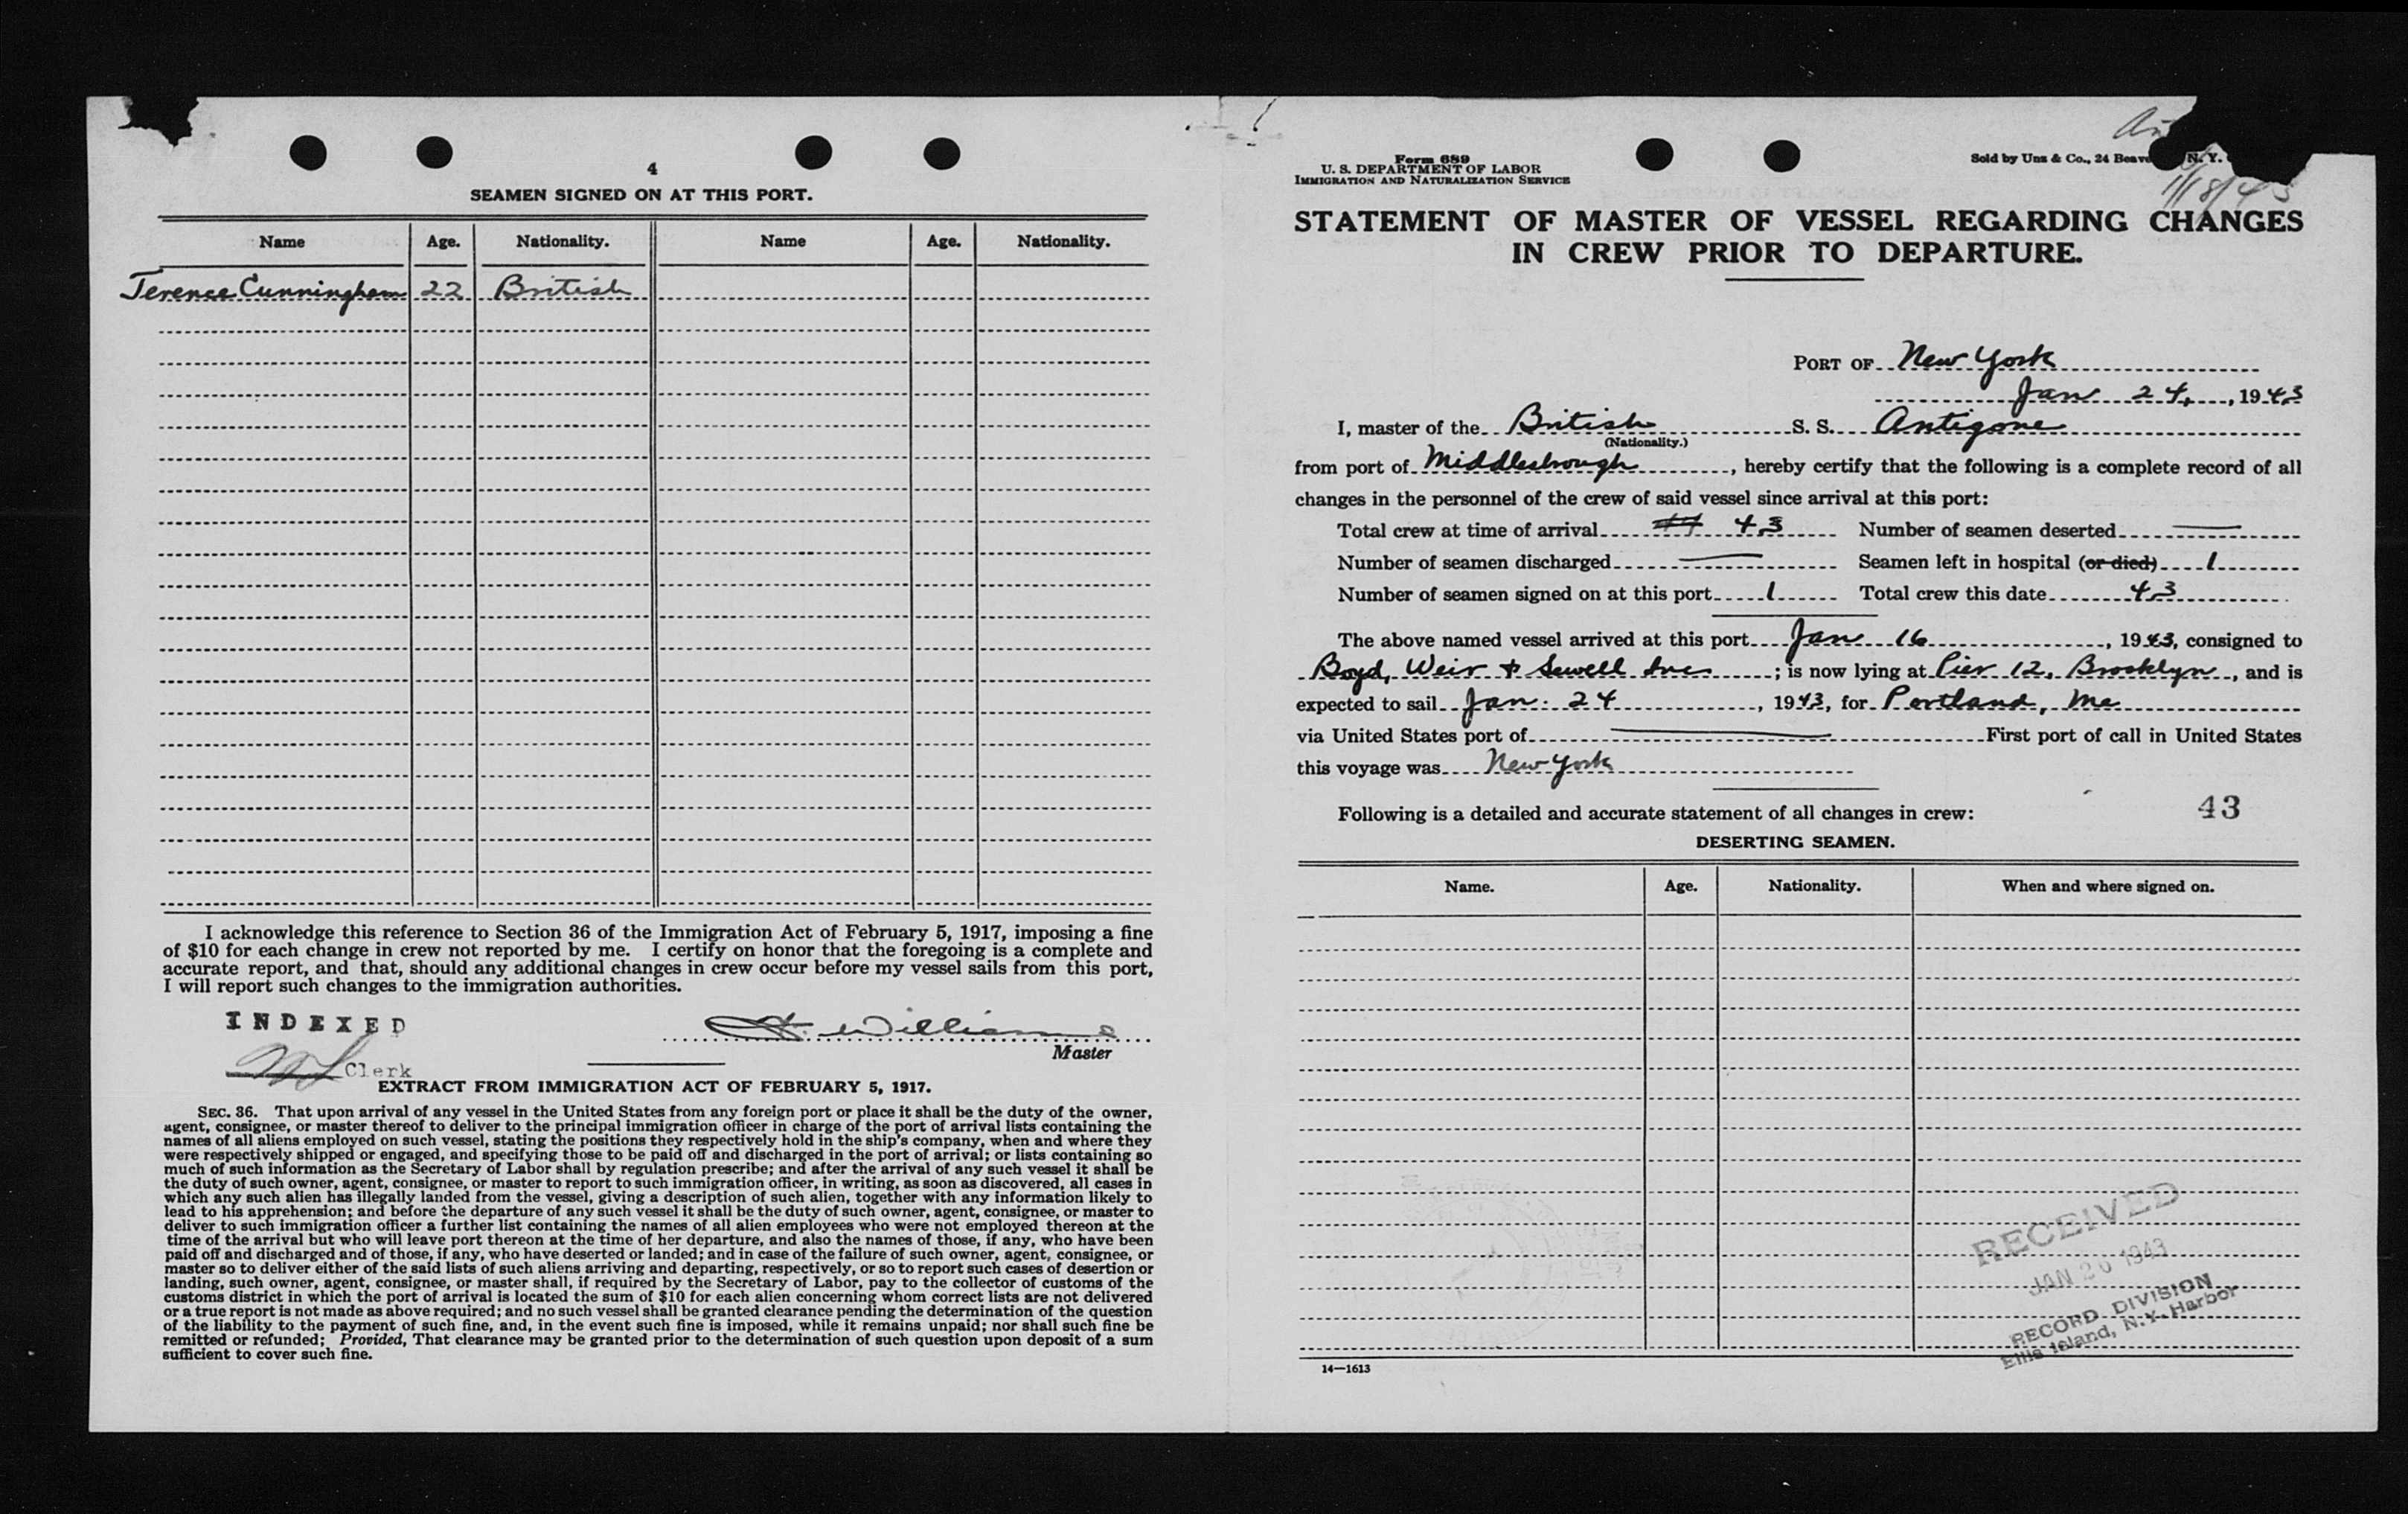 4
SEAMEN SIGNED ON AT THIS PORT.
Name Age. Nationality. Name Age. Nationality.
Terence Cunningham 22 British
I acknowledge this reference to Section 36 of the Immigration Act of February 5, 1917, imposing a fine
of $10 for each change in crew not reported by me. I certify on honor that the foregoing is a complete and
accurate report, and that, should any additional changes in crew occur before my vessel sails from this port,
I will report such changes to the immigration authorities.
INDEXED
H. Williams
Master
Clerk
EXTRACT FROM IMMIGRATION ACT OF FEBRUARY 5, 1917.
SEC. 36. That upon arrival of any vessel in the United States from any foreign port or place it shall be the duty of the owner,
agent, consignee, or master thereof to deliver to the principal immigration officer in charge of the port of arrival lists containing the
names of all aliens employed on such vessel, stating the positions they respectively hold in the ship's company, when and where they
were respectively shipped or engaged, and specifying those to be paid off and discharged in the port of arrival; or lists containing so
much of such information as the Secretary of Labor shall by regulation prescribe; and after the arrival of any such vessel it shall be
the duty of such owner, agent, consignee, or master to report to such immigration officer, in writing, as soon as discovered, all cases in
which any such alien has illegally landed from the vessel, giving a description of such alien, together with any information likely to
lead to his apprehension; and before the departure of any such vessel it shall be the duty of such owner, agent, consignee, or master to
deliver to such immigration officer a further list containing the names of all alien employees who were not employed thereon at the
time of the arrival but who will leave port thereon at the time of her departure, and also the names of those, if any, who have been
paid off and discharged and of those, if any, who have deserted or landed; and in case of the failure of such owner, agent, consignee, or
master so to deliver either of the said lists of such aliens arriving and departing, respectively, or so to report such cases of desertion or
landing, such owner, agent, consignee, or master shall, if required by the Secretary of Labor, pay to the collector of customs of the
customs district in which the port of arrival is located the sum of $10 for each alien concerning whom correct lists are not delivered
or a true report is not made as above required; and no such vessel shall be granted clearance pending the determination of the question
of the liability to the payment of such fine, and, in the event such fine is imposed, while it remains unpaid; nor shall such fine be
remitted or refunded; Provided, That clearance may be granted prior to the determination of such question upon deposit of a sum
sufficient to cover such fine.
Form 689
U. S. DEPARTMENT OF LABOR
IMMIGRATION AND NATURALIZATION SERVICE
Sold by Unz & Co., 24 Beave N. Y.
1/18/43
STATEMENT OF MASTER OF VESSEL REGARDING CHANGES
IN CREW PRIOR TO DEPARTURE.
PORT OF New York
Jan 24, , 1943
I, master of the British S. S. Antigone
(Nationality.)
from port of Middlesbrough , hereby certify that the following is a complete record of all
changes in the personnel of the crew of said vessel since arrival at this port:
Total crew at time of arrival 43 Number of seamen deserted
Number of seamen discharged Seamen left in hospital (or died) 1
Number of seamen signed on at this port 1 Total crew this date 43
The above named vessel arrived at this port Jan 16 , 1943, consigned to
Boyd, Weir & Sewell Inc ; is now lying at Pier 12, Brooklyn , and is
expected to sail Jan. 24 , 1943, for Portland, Me
via United States port of First port of call in United States
this voyage was New York
Following is a detailed and accurate statement of all changes in crew: 43
DESERTING SEAMEN.
Name. Age. Nationality. When and where signed on.
RECEIVED
JAN 26 1943
RECORD DIVISION
Ellis Island, N.Y. Harbor
14—1613